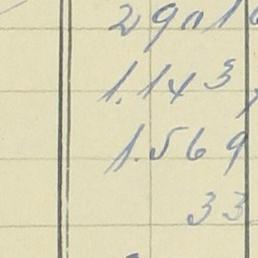 1.143
1.569
33